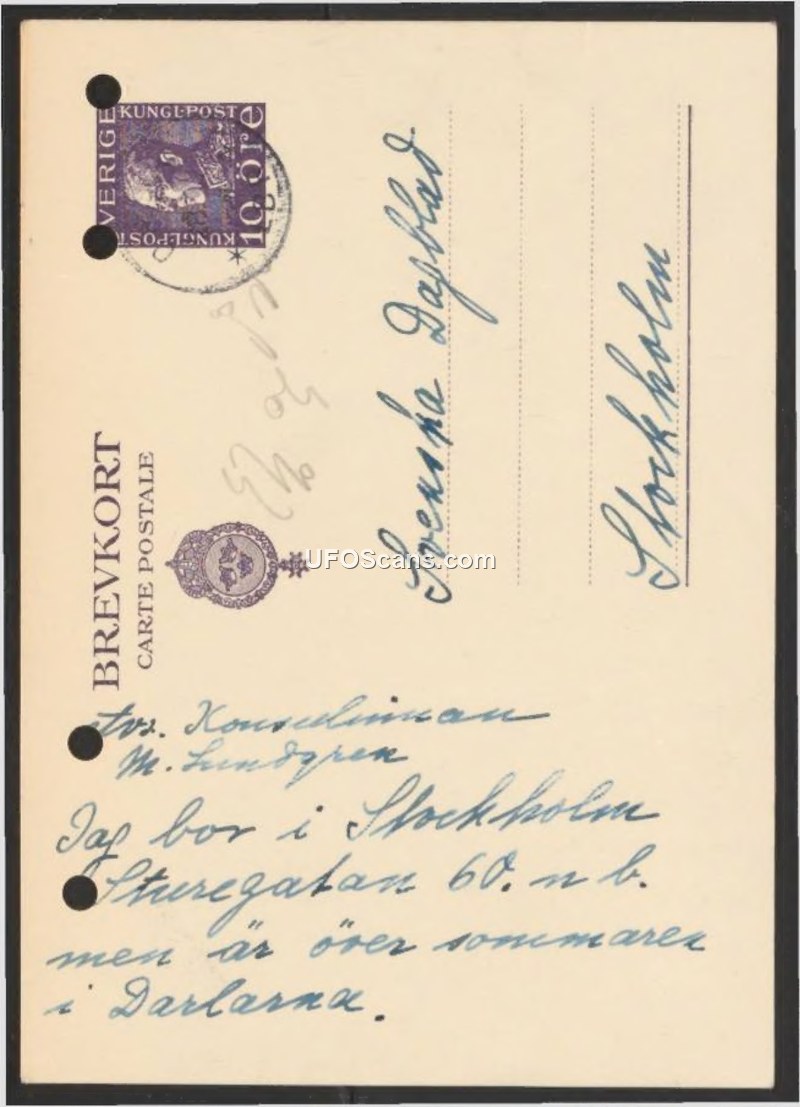 SVERIGE
KUNGL·POST
10 öre
KUNGL·POST
BREVKORT
CARTE POSTALE
UFOScans.com
Svenska Dagblad
Stockholm
Konsulinnan
M. Lundgren
Jag bor i Stockholm
Sturegatan 60. n b.
men är över sommaren
i Darlarna.